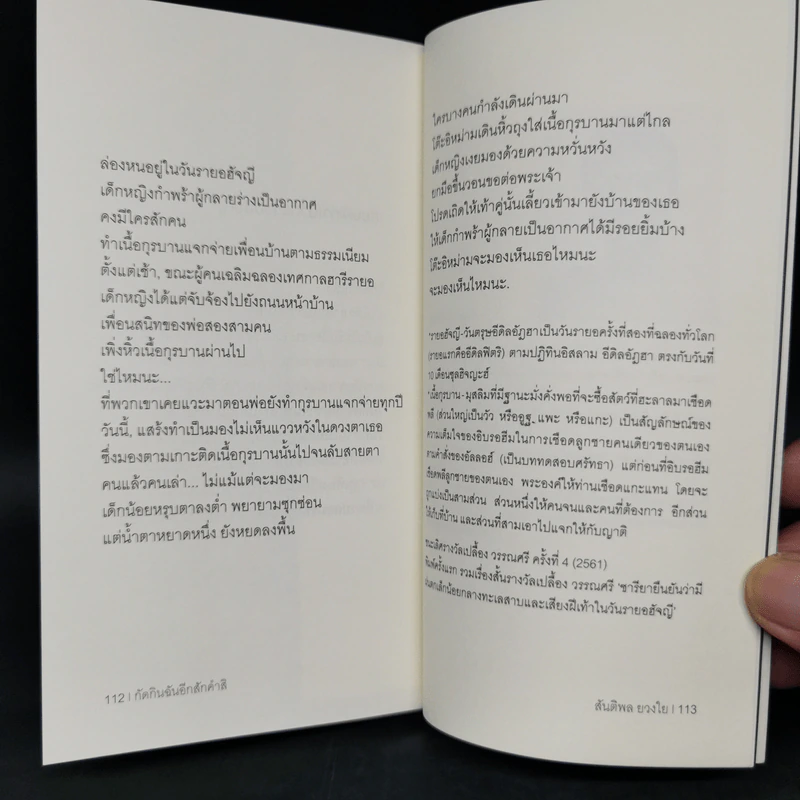 ล่องหนอยู่ในวันรายอฮัจญี
เด็กหญิงกำพร้าผู้กลายร่างเป็นอากาศ
คงมีใครสักคน
ทำเนื้อกุรบานแจกจ่ายเพื่อนบ้านตามธรรมเนียม
ตั้งแต่เช้า, ขณะผู้คนเฉลิมฉลองเทศกาลฮารีรายอ
เด็กหญิงได้แต่จับจ้องไปยังถนนหน้าบ้าน
เพื่อนสนิทของพ่อสองสามคน
เพิ่งหิ้วเนื้อกุรบานผ่านไป
ใช่ไหมนะ...
ที่พวกเขาเคยแวะมาตอนพ่อยังทำกุรบานแจกจ่ายทุกปี
วันนี้, แสร้งทำเป็นมองไม่เห็นแววหวังในดวงตาเธอ
ซึ่งมองตามเกาะติดเนื้อกุรบานนั้นไปจนลับสายตา
คนแล้วคนเล่า... ไม่แม้แต่จะมองมา
เด็กน้อยหรุบตาลงต่ำ พยายามซุกซ่อน
แต่น้ำตาหยาดหนึ่ง ยังหยดลงพื้น
112 | กัดกินฉันอีกสักคำสิ
ใครบางคนกำลังเดินผ่านมา
โต๊ะอิหม่ามเดินหิ้วถุงใส่เนื้อกุรบานมาแต่ไกล
เด็กหญิงเงยมองด้วยความหวั่นหวัง
ยกมือขึ้นวอนขอต่อพระเจ้า
โปรดเถิดให้เท้าคู่นั้นเลี้ยวเข้ามายังบ้านของเธอ
ให้เด็กกำพร้าผู้กลายเป็นอากาศได้มีรอยยิ้มบ้าง
โต๊ะอิหม่ามจะมองเห็นเธอไหมนะ
จะมองเห็นไหมนะ.
รายอฮัจญี-วันตรุษอีดิลอัฎฮาเป็นวันรายอครั้งที่สองที่ฉลองทั่วโลก
(รายอแรกคืออีดิลฟิตรี) ตามปฏิทินอิสลาม อีดิลอัฎฮา ตรงกับวันที่
10 เดือนซุลฮิจญะฮ์
เนื้อกุรบาน-มุสลิมที่มีฐานะมั่งคั่งพอที่จะซื้อสัตว์ที่ฮะลาลมาเชือด
พลี (ส่วนใหญ่เป็นวัว หรืออูฐ แพะ หรือแกะ) เป็นสัญลักษณ์ของ
ความเต็มใจของอิบรอฮีมในการเชือดลูกชายคนเดียวของตนเอง
ตามคำสั่งของอัลลอฮ์ (เป็นบททดสอบศรัทธา) แต่ก่อนที่อิบรอฮีม
เชือดพลีลูกชายของตนเอง พระองค์ให้ท่านเชือดแกะแทน โดยจะ
ถูกแบ่งเป็นสามส่วน ส่วนหนึ่งให้คนจนและคนที่ต้องการ อีกส่วน
ให้เก็บที่บ้าน และส่วนที่สามเอาไปแจกให้กับญาติ
ชนะเลิศรางวัลเปลื้อง วรรณศรี ครั้งที่ 4 (2561)
พิมพ์ครั้งแรก รวมเรื่องสั้นรางวัลเปลื้อง วรรณศรี 'ซารียายืนยันว่ามี
เด็กน้อยกลางทะเลสาบและเสียงฝีเท้าในวันรายอฮัจญี'
สันติพล ยวงใย | 113